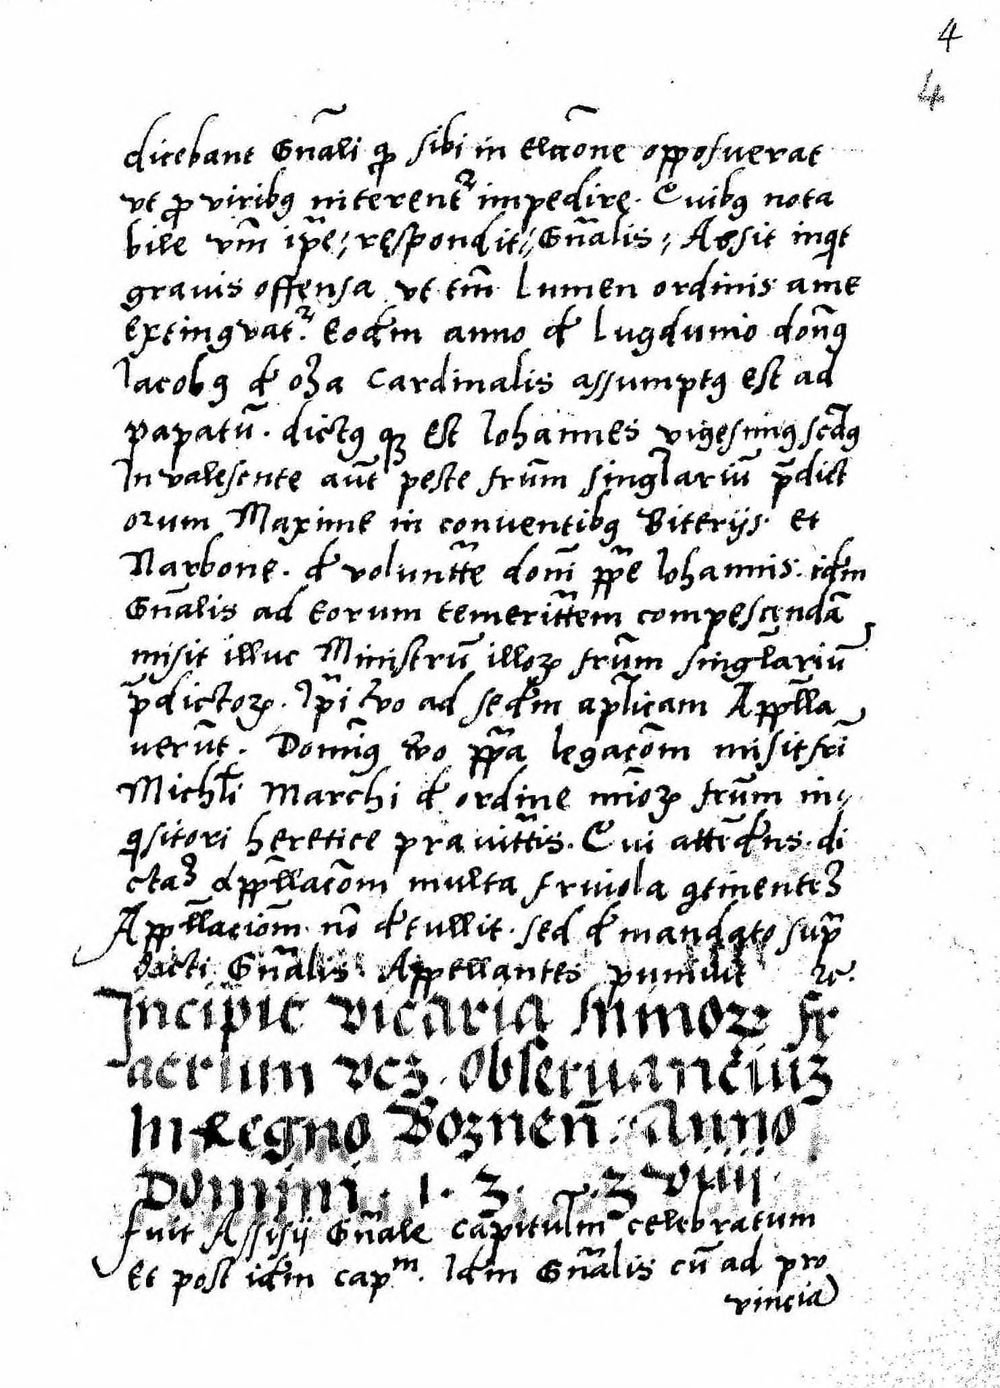 4
4
dicebant Gn̄ali qꝫ sibi in elc̄cione opposuerat
vt ꝓ viribꝰ niterent᷑ impedire. Quibꝰ nota
bile vm̄ ip̄e; respondit; Gn̄alis; Absit inqit
grauis offensa vt tm̄ lumen ordinis a me
extinguat᷑. Eodm̄ anno đ lugdunio don̄ꝰ
Iacobꝰ đ oza Cardinalis assumptꝰ est ad
papatū. dictꝰ qꝫ est Iohannes vigesimꝰ scd̄ꝰ
Inualescente aūt peste frūm singl̄ariū p̄dict
orum Maxime in conuentibꝰ Biterijs. et
Narbone. đ volunt̄te doni pp̄e Iohannis. idm̄
Gn̄alis ad eorum temerit̄tem compescendā
misit illuc Ministrū illoꝝ frūm singl̄ariū
p̄dictoꝝ. Ip̄i v̄o ad sedm̄ apl̄icam Appl̄la
uerūt. Domīꝰ v̄o pp̄a legac̄om misit fri
Michl̄i Marchi đ ordine mīoꝝ frūm in
qisitori heretice prauit̄tis. Qui attēdēns. di
ctaꝫ appl̄lac̄om multa friuola ꝯtinenteꝫ
Appl̄laciom̄ nō đtullit. sed đ mandato sup̄
dicti Gn̄alis Appellantes puniuit ꝛc.
Incipit vicaria minoꝝ fr
atrum vcꝫ. obseruanciuꝫ
In Regno Boznen̄. Anno
Domini. 1. 3. .3 viiij.
fuit Assisij Gn̄ale Capitulm̄ celebratum
Et post idm̄ capm. Idm̄ Gn̄alis cū ad pro
vincia